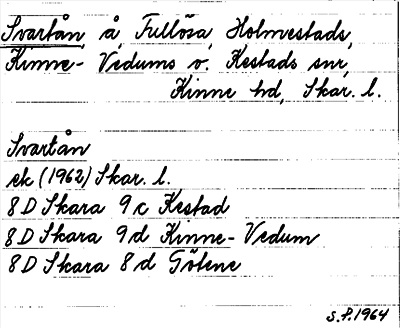 Svartån, å, Fullösa, Holmestads,
Kinne-Vedums o. Kestads snr,
Kinne hd, Skar. l.
Svartån
ek (1962) Skar. l.
8 D Skara 9 c Kestad
8 D Skara 9 d Kinne-Vedum
8 D Skara 8 d Götene
S.P. 1964